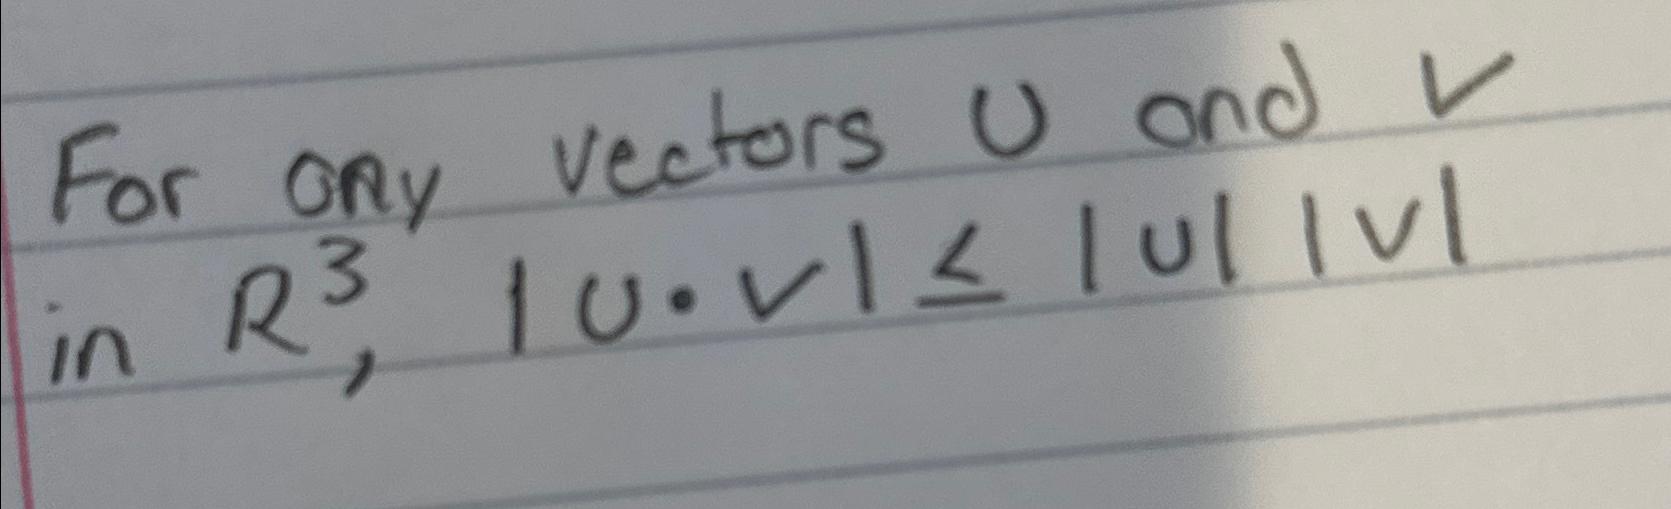 For any vectors U and V
in R³, |U•V| ≤ |U| |V|